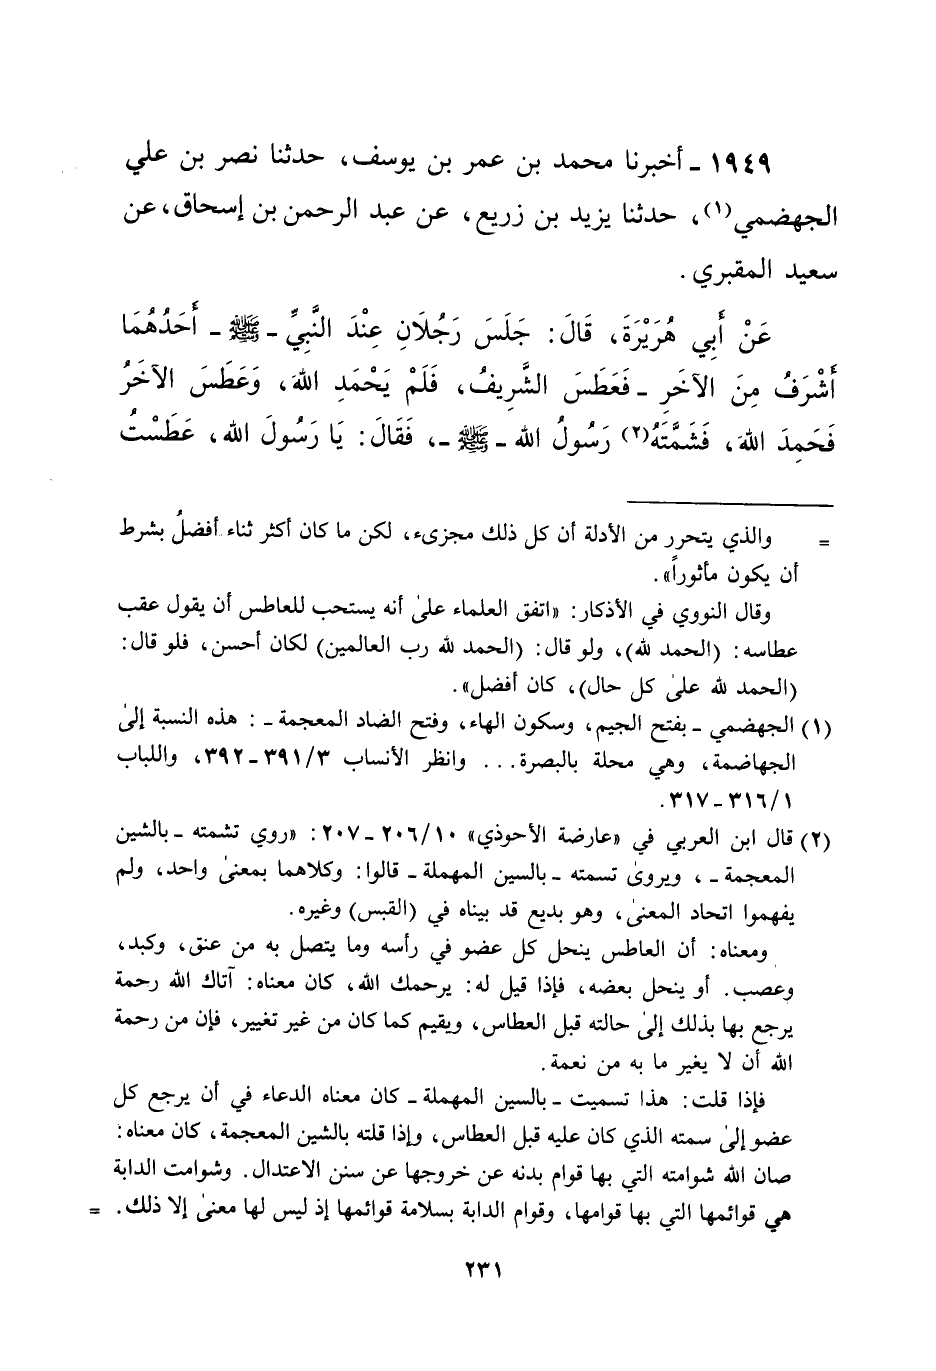 ١٩٤٩ ـ أخبرنا محمد بن عمر بن يوسف، حدثنا نصر بن علي
الجهضمي(١)، حدثنا يزيد بن زريع، عن عبد الرحمن بن إسحاق، عن
سعيد المقبري.
عَنْ أَبِي هُرَيْرَةَ، قَالَ: جَلَسَ رَجُلَانِ عِنْدَ النَّبِيِّ ـ ﷺ ـ أَحَدُهُمَا
أَشْرَفُ مِنَ الآخَرِ ـ فَعَطَسَ الشَّرِيفُ، فَلَمْ يَحْمَدِ اللهَ، وَعَطَسَ الآخَرُ
فَحَمِدَ اللهَ، فَشَمَّتَهُ(٢) رَسُولُ الله ـ ﷺ ـ، فَقَالَ: يَا رَسُولَ الله، عَطَسْتُ
= والذي يتحرر من الأدلة أن كل ذلك مجزىء، لكن ما كان أكثر ثناء أفضلُ بشرط
أن يكون مأثوراً».
وقال النووي في الأذكار: «اتفق العلماء علىٰ أنه يستحب للعاطس أن يقول عقب
عطاسه: (الحمد لله)، ولو قال: (الحمد لله رب العالمين) لكان أحسن، فلو قال:
(الحمد لله علىٰ كل حال)، كان أفضل».
(١) الجهضمي ـ بفتح الجيم، وسكون الهاء، وفتح الضاد المعجمة ـ : هذه النسبة إلىٰ
الجهاضمة، وهي محلة بالبصرة... وانظر الأنساب ٣٩١/٣ ـ ٣٩٢، واللباب
٣١٦/١ ـ ٣١٧.
(٢) قال ابن العربي في «عارضة الأحوذي» ٢٠٦/١٠ ـ ٢٠٧: «روي تشمته ـ بالشين
المعجمة ـ ، ويروىٰ تسمته ـ بالسين المهملة ـ قالوا: وكلاهما بمعنىٰ واحد، ولم
يفهموا اتحاد المعنىٰ، وهو بديع قد بيناه في (القبس) وغيره.
ومعناه: أن العاطس ينحل كل عضو في رأسه وما يتصل به من عنق، وكبد،
وعصب. أو ينحل بعضه، فإذا قيل له: يرحمك الله، كان معناه: آتاك الله رحمة
يرجع بها بذلك إلىٰ حالته قبل العطاس، ويقيم كما كان من غير تغيير، فإن من رحمة
الله أن لا يغير ما به من نعمة.
فإذا قلت: هذا تسميت ـ بالسين المهملة ـ كان معناه الدعاء في أن يرجع كل
عضو إلىٰ سمته الذي كان عليه قبل العطاس، وإذا قلته بالشين المعجمة، كان معناه:
صان الله شوامته التي بها قوام بدنه عن خروجها عن سنن الاعتدال. وشوامت الدابة
هي قوائمها التي بها قوامها، وقوام الدابة بسلامة قوائمها إذ ليس لها معنىٰ إلا ذلك. =
٢٣١